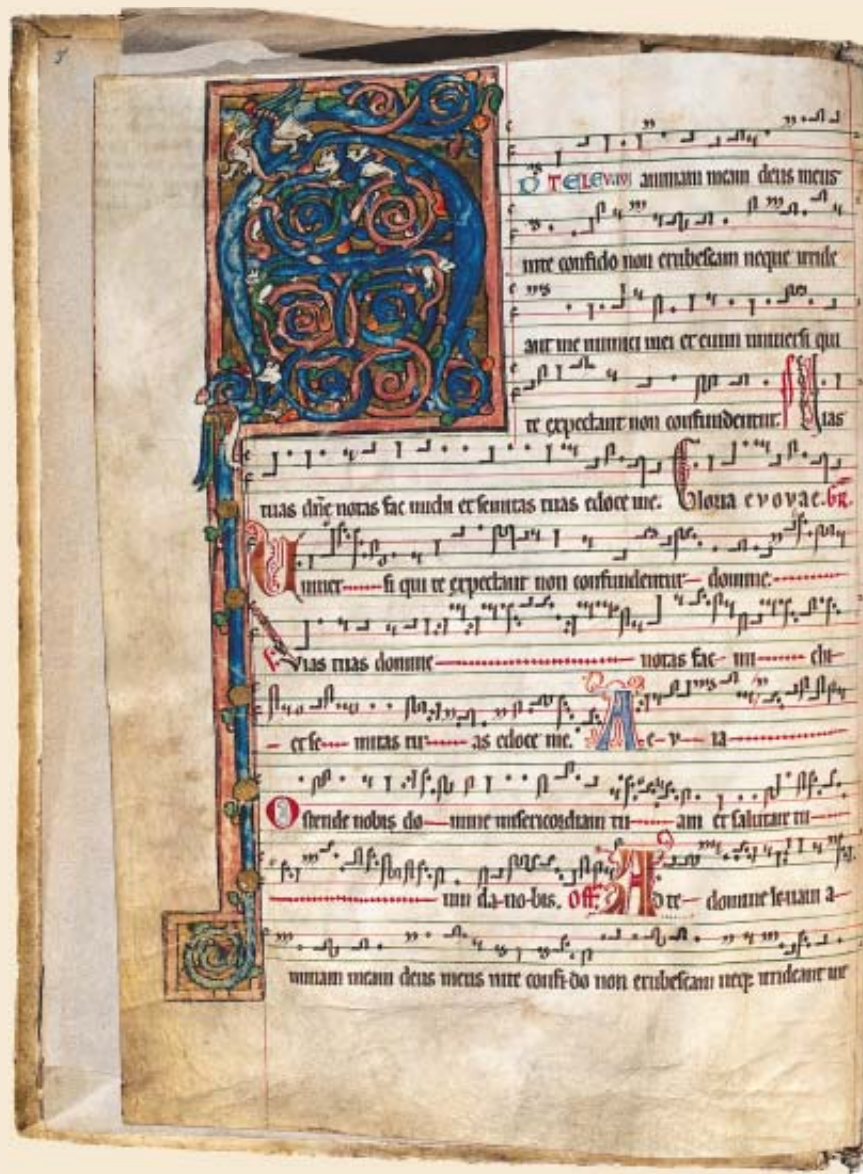 A
D TE LEVAVI animam meam deus meus
in te confido non erubescam neque irride
ant me inimici mei et enim universi qui
te expectant non confundentur. Vias
tuas dñe notas fac michi et semitas tuas edoce me. Gloria e v o v a e. GR.
Univer----si qui te expectant non confundentur— domine.
Vias tuas domine notas fac- mi chi-
- et se-- mitas tu as edoce me. A e-v-ia
Ostende nobis do—mine misericordiam tu am et salutare tu
um da-no-bis. Off. Ad te— domine levavi a-
nimam meam deus meus in te confi-do non erubescam neq; irrideant me